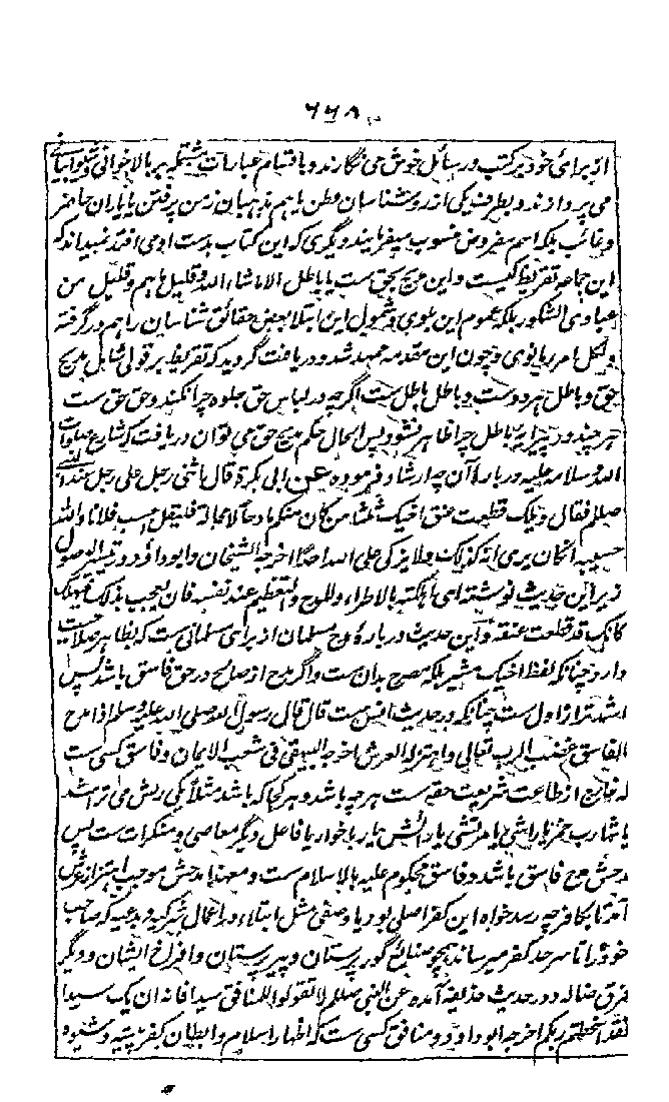 ۶۶۸
از برای خود بر کتب و رسائل خویش می نگارند و باقسام عبارات مشتمله بر بالاخوانی و شیوا بیانی
می پردازند و بطرف یکی از روشناسان وطن یا هم مذهبان زمن بر فتن یا یاران حاضر
و غائب بلکه اسم مفروض منسوب میفرمایند و دیگری که این کتاب بدست او می افتد نمیداند که
این جامه تقریظ کیست و این مدح بحق ست یا باطل الا ماشاء الله و قلیل ما هم و قلیل من
عبادی الشکور بلکه عموم این بلوی و شمول این ابتلا بعض حقائق شناسان را هم در گرفته
و لکل امرء ما نوی و چون این مقدمه ممهد شد و دریافت گردید که تقریظ بر قولی شامل مدح
بحق و باطل هر دوست و باطل باطل ست اگرچه در لباس حق جلوه چرا نکند و حق حق ست
هر چند در پیرایه باطل چرا ظاهر نشود پس الحال حکم مدح حق می توان دریافت که شارع صلوات
الله و سلامه علیه در باره آن چه ارشاد فرموده عن ابی بکرة قال اثنی رجل علی رجل عند النبی
صلعم فقال ویلک قطعت عنق اخیک ثلثا من کان منکم مادحا لا محالة فلیقل احسب فلانا والله
حسیبه ان کان یری انه کذلک ولا یزکی علی الله احدا اخرجه الشیخان و ابو داؤد و در تیسیر الوصول
زیر این حدیث نوشته ای اهلکته بالاطراء والمدح والتعظیم عند نفسه فان یعجب بذلک فیهلک
کانک قد قطعت عنقه و این حدیث در باره مدح مسلمان از برای مسلمانی ست که بظاهر صلاحیت
دارد چنانکه لفظ اخیک مشیر بلکه مصرح بدان ست و اگر مدح از صالح در حق فاسق باشد پس
اشد تر از اول ست چنانکه در حدیث انس ست قال قال رسول الله صلی الله علیه وسلم اذا مدح
الفاسق غضب الرب تعالی و اهتز له العرش اخرجه البیهقی فی شعب الایمان و فاسق کسی ست
که خارج از طاعت شریعت حقه ست هر چه باشد و هر کجا که باشد مثلا یکی ریش می تراشد
یا شارب خمر یا راشی یا مرتشی یا رائش یا ربا خوار یا فاعل دیگر معاصی و منکرات ست پس
مدحش مدح فاسق باشد و فاسق محکوم علیه بالاسلام ست و معهذا مدحش موجب اهتزاز عرش
آمد تا بکافر چه رسد خواه این کفر اصلی بود یا وصفی مثل ابتلاء در اعمال شرکیه و بدعیه که صاحب
خود را تا سرحد کفر میرساند همچو صنائع گورپرستان و پیرپرستان و افراخ ایشان و دیگر
فرق ضاله و در حدیث حذیفه آمده عن النبی صلعم لا تقولوا للمنافق سیدا فانه ان یک سیدا
فقد اسخطتم ربکم اخرجه ابو داود و منافق کسی ست که اظهار اسلام و ابطان کفر پیشه و شیوه